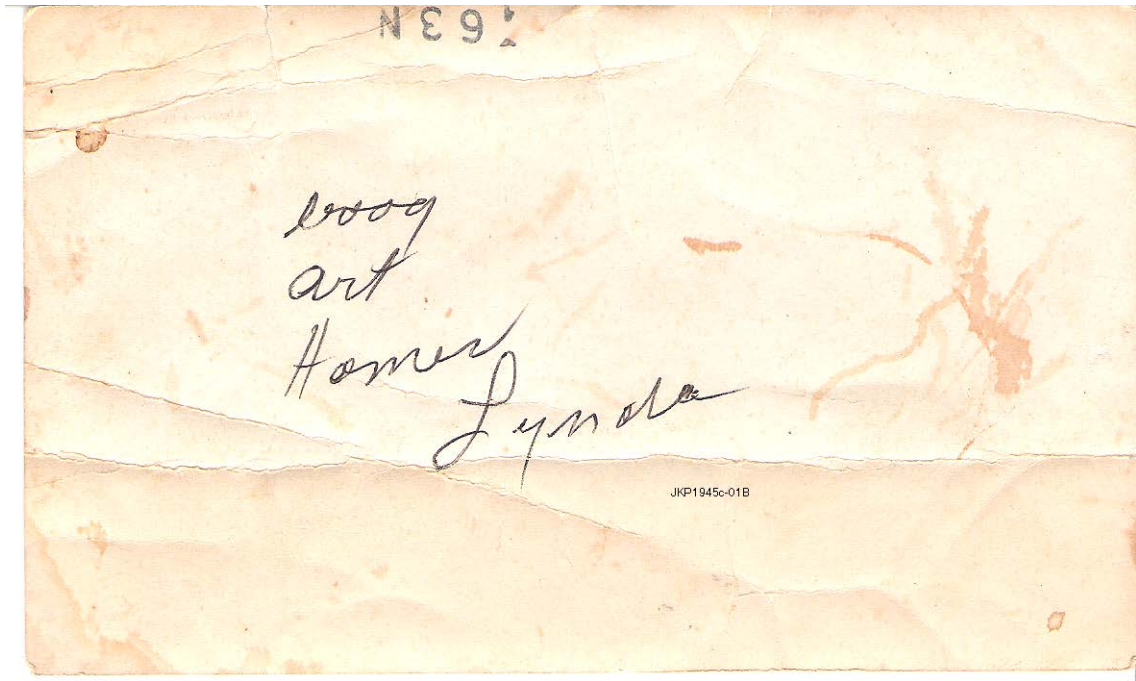 163N
art
Homer
Lynda
JKP1945c-01B